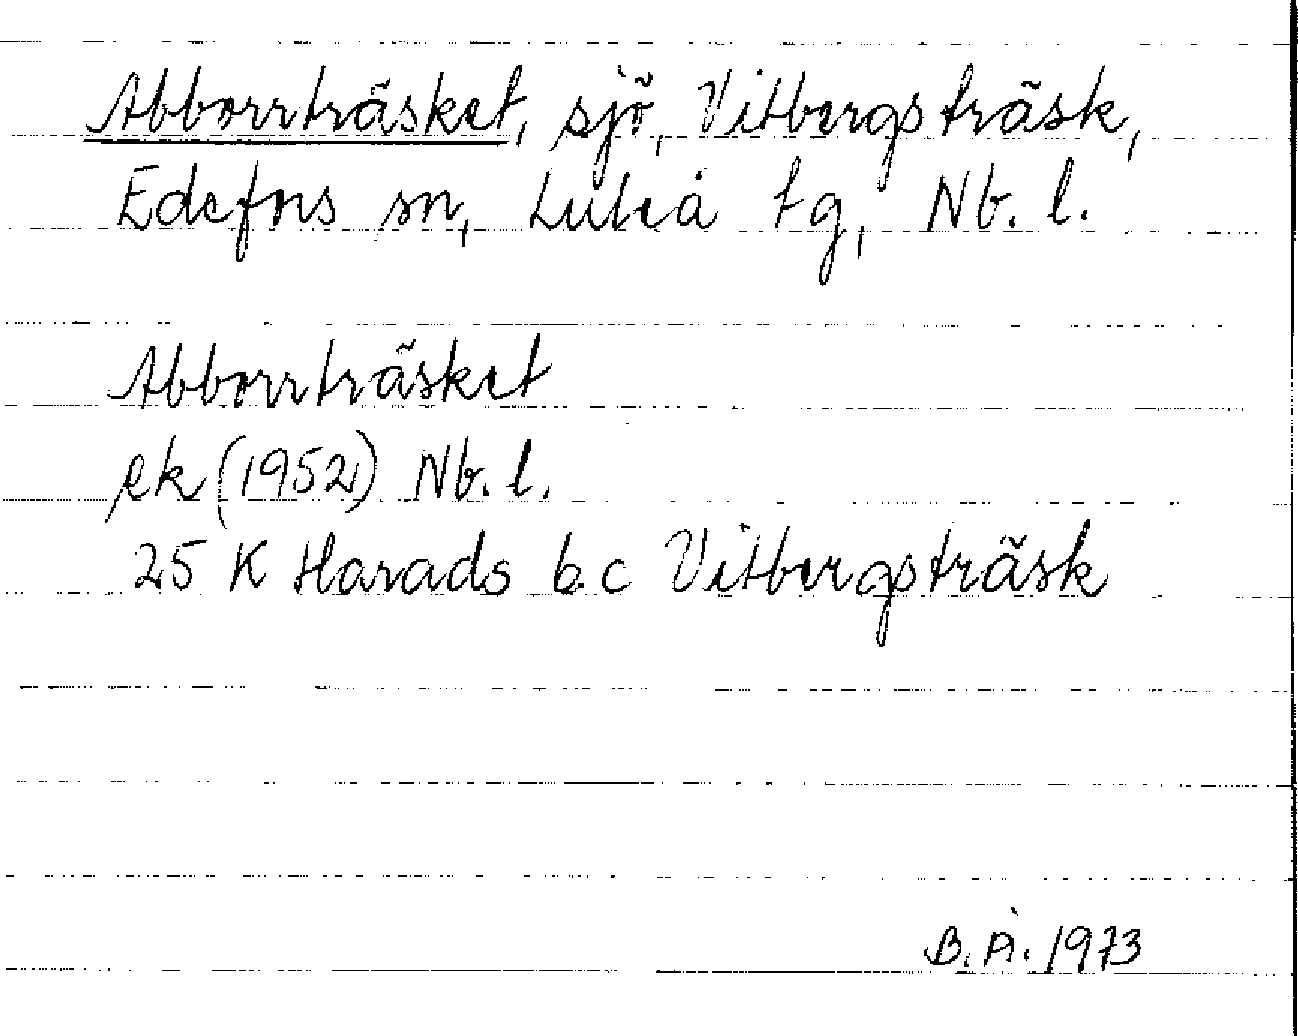 Abborrträsket, sjö, Vitbergsträsk,
Edefors sn, Luleå tg, Nb. l.
Abborrträsket
ek (1952) Nb. l.
25 K Harads b.c Vitbergsträsk
B.Å. 1973